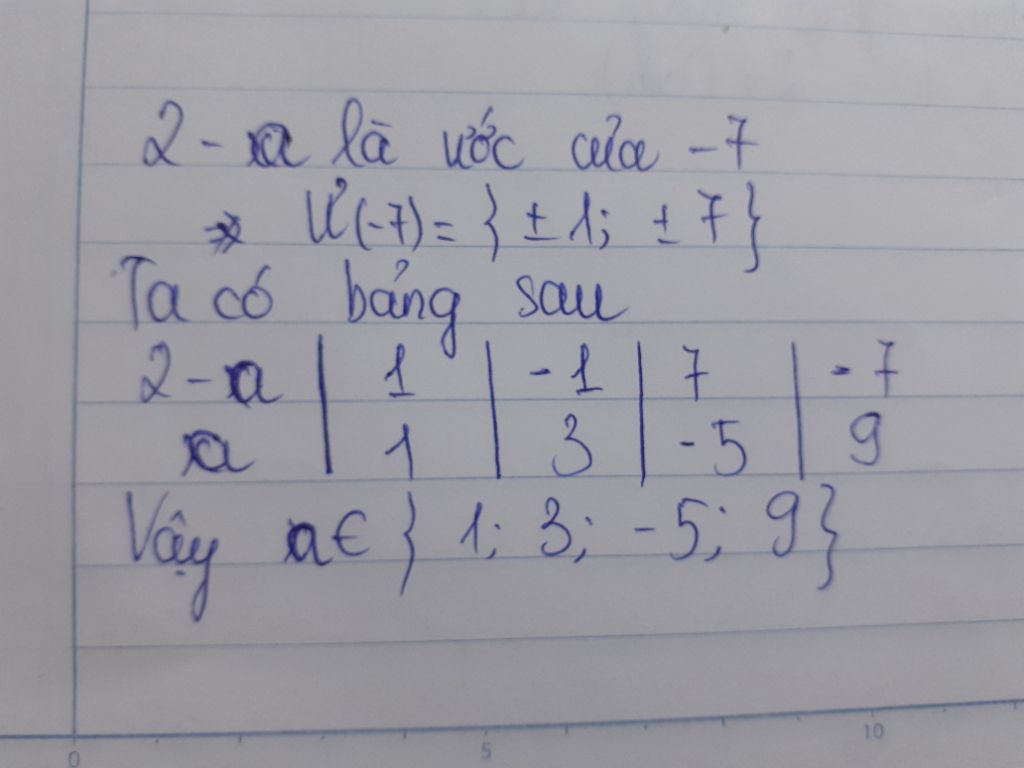 2 - a là ước của -7
=> Ư(-7) = { ± 1; ± 7 }
Ta có bảng sau
2 - a | 1 | -1 | 7 | -7
a | 1 | 3 | -5 | 9
Vậy a ∈ { 1; 3; -5; 9 }
0 5 10